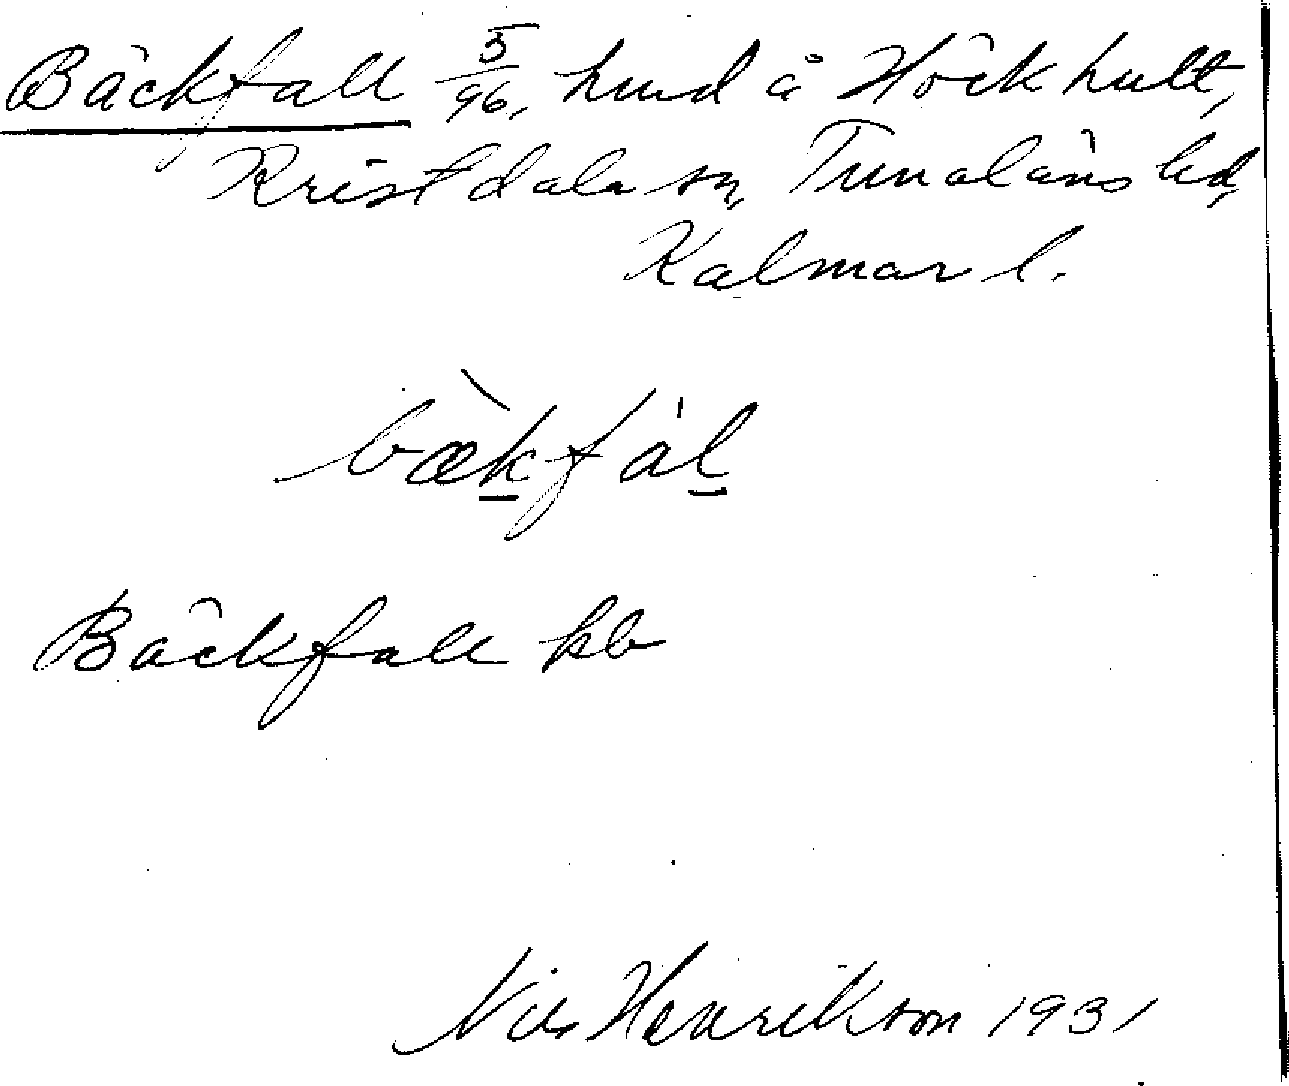 Bäckfall 5/96, hmd å Höckhult,
Kristdala sn, Tunaläns hd,
Kalmar l.
bækfàl
Bäckfall kb
Nils Henrikson 1931